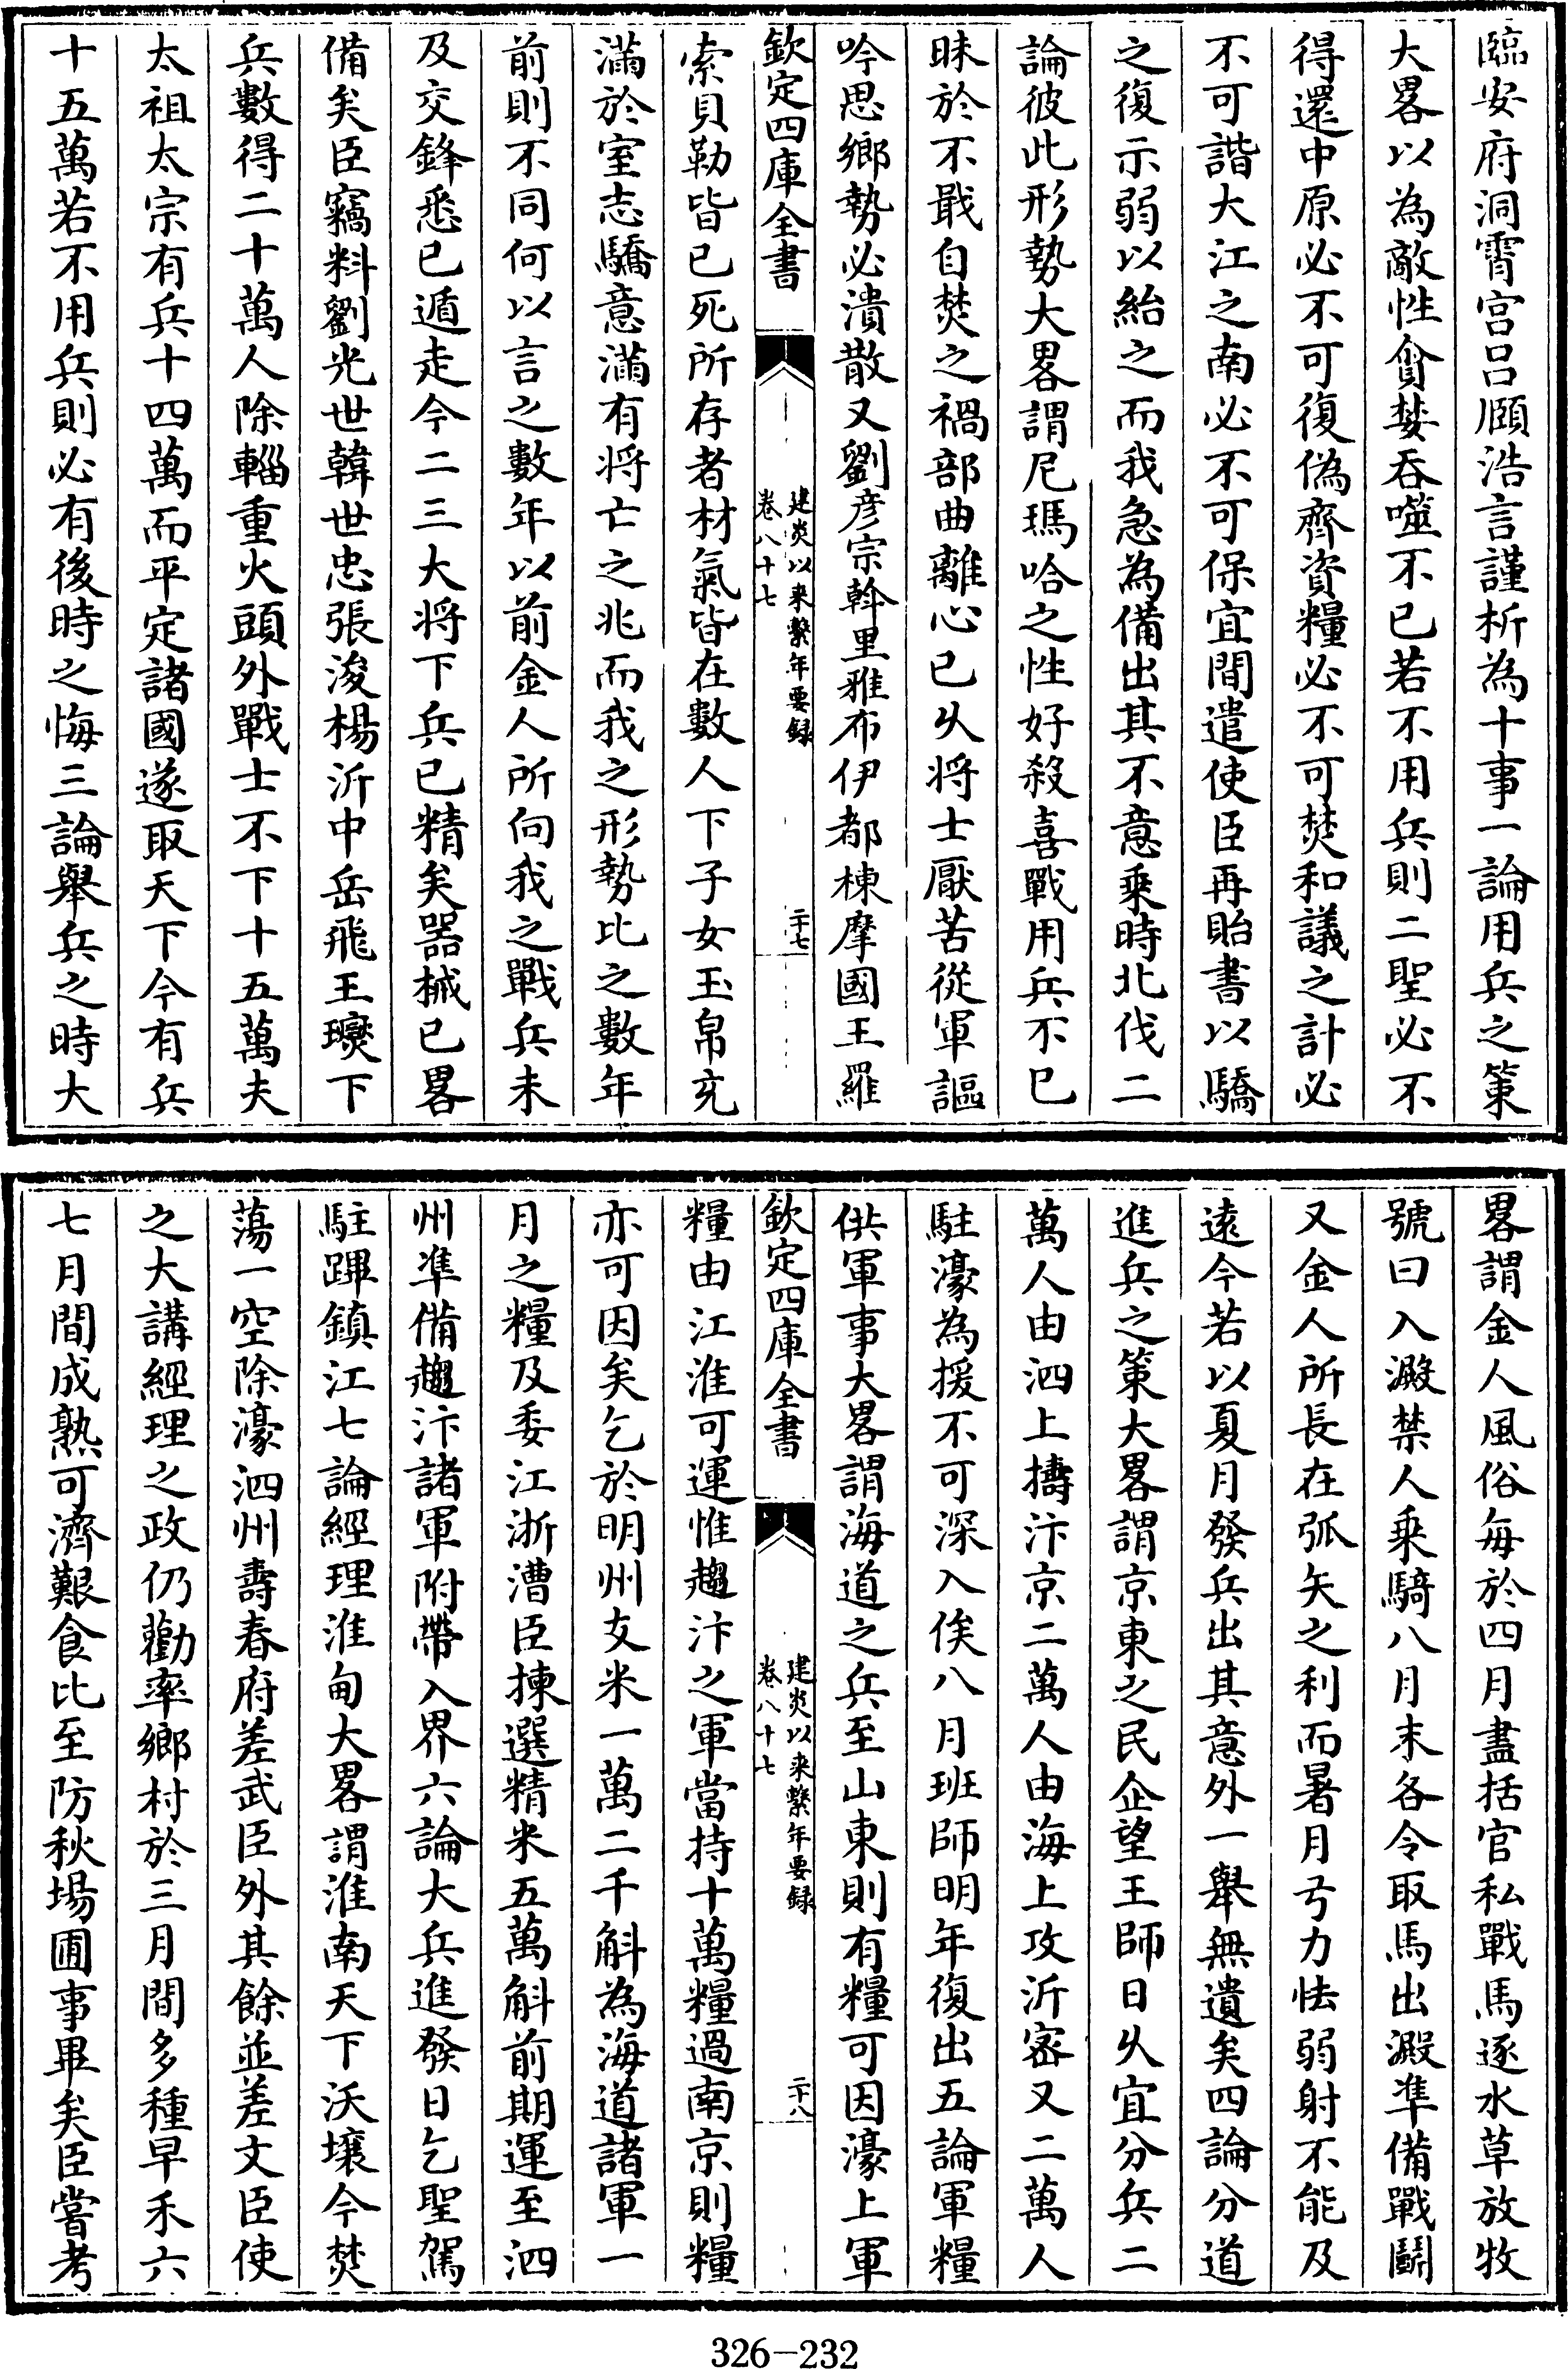 臨安府洞霄宫吕頤浩言謹析為十事一論用兵之策
大畧以為敵性貪婪吞噬不已若不用兵則二聖必不
得還中原必不可復偽齊資糧必不可焚和議之計必
不可諧大江之南必不可保宜間遣使臣再貽書以驕
之復示弱以紿之而我急為備出其不意乘時北伐二
論彼此形勢大畧謂尼瑪哈之性好殺喜戰用兵不已
昧於不戢自焚之禍部曲離心已乆将士厭苦從軍謳
吟思鄉勢必潰散又劉彦宗斡里雅布伊都棟摩國王羅
欽定四庫全書
建炎以来繫年要録
卷八十七
二十七
索貝勒皆已死所存者材氣皆在數人下子女玉帛充
滿於室志驕意滿有将亡之兆而我之形勢比之數年
前則不同何以言之數年以前金人所向我之戰兵未
及交鋒悉已遁走今二三大将下兵已精矣器械已畧
備矣臣竊料劉光世韓世忠張浚楊沂中岳飛王𤫉下
兵數得二十萬人除輜重火頭外戰士不下十五萬夫
太祖太宗有兵十四萬而平定諸國遂取天下今有兵
十五萬若不用兵則必有後時之悔三論舉兵之時大
畧謂金人風俗每於四月盡括官私戰馬逐水草放牧
號曰入澱禁人乘騎八月末各令取馬出澱準備戰鬭
又金人所長在弧矢之利而暑月弓力怯弱射不能及
遠今若以夏月發兵出其意外一舉無遺矣四論分道
進兵之策大畧謂京東之民企望王師日乆宜分兵二
萬人由泗上擣汴京二萬人由海上攻沂密又二萬人
駐濠為援不可深入俟八月班師明年復出五論軍糧
供軍事大畧謂海道之兵至山東則有糧可因濠上軍
欽定四庫全書
建炎以来繫年要録
卷八十七
二十八
糧由江淮可運惟趨汴之軍當持十萬糧過南京則糧
亦可因矣乞於明州支米一萬二千斛為海道諸軍一
月之糧及委江浙漕臣揀選精米五萬斛前期運至泗
州準備趨汴諸軍附帶入界六論大兵進發日乞聖駕
駐蹕鎮江七論經理淮甸大畧謂淮南天下沃壤今焚
蕩一空除濠泗州壽春府差武臣外其餘並差文臣使
之大講經理之政仍勸率鄉村於三月間多種早禾六
七月間成熟可濟艱食比至防秋場圃事畢矣臣嘗考
326-232